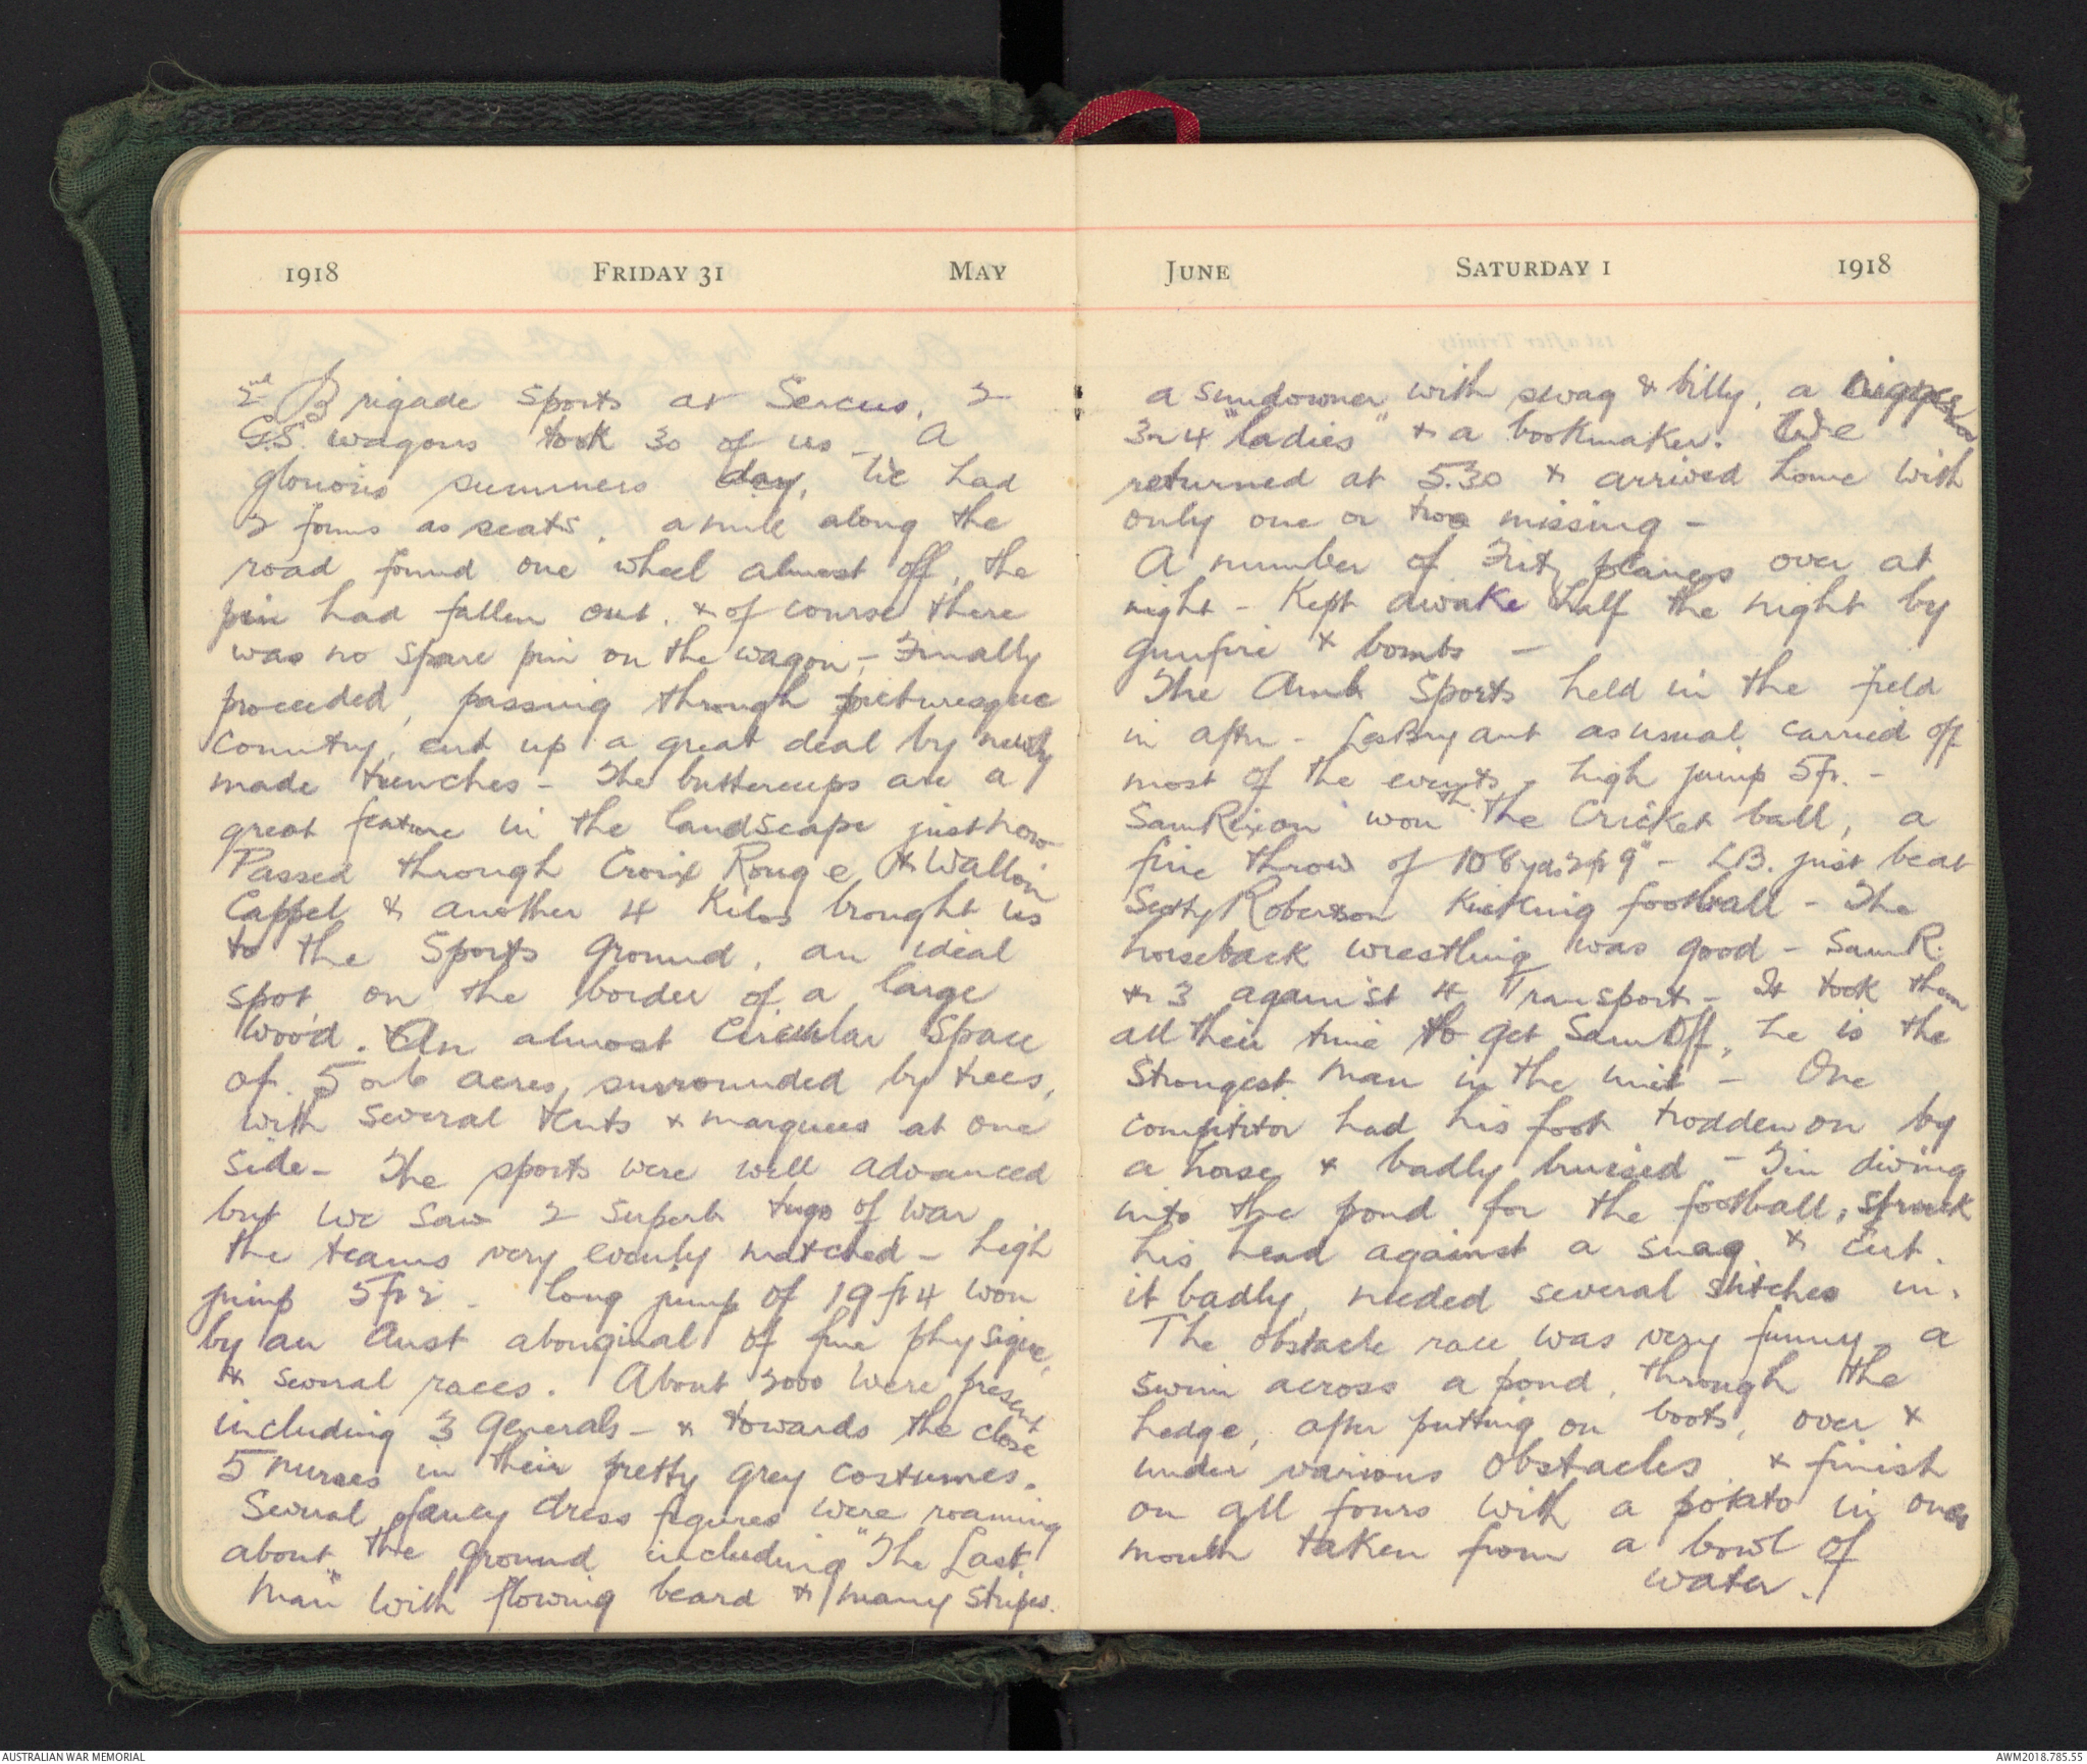 1918 FRIDAY 31 MAY
2nd Brigade sports at Sercus, 2
G.S. wagons took 30 of us - A
glorious summers day, we had
2 forms as seats, a mile along the
road found one wheel almost off, the
pin had fallen out. & of course there
was no spare pin on the wagon - Finally
proceeded, passing through picturesque
country, cut up a great deal by newly
made trenches - The buttercups are a
great feature in the landscape just now
Passed through Croix Rouge & Wallon
Cappel & another 4 Kilos brought us
to the Sports ground, an ideal
spot, on the border of a large
wood. An almost Circular Space
of 5 or 6 acres, surrounded by trees,
with several tents & marquees at one
side - The sports were well advanced
but we saw 2 superb tugs of war
the teams very evenly matched - high
jump 5ft 2 - long jump of 19 ft 4 won
by an Aust aboriginal of fine physique,
& several races. About 3000 were present
including 3 Generals - & towards the close
5 nurses in their pretty grey costumes.
Several fancy dress figures were roaming
about the ground including "The Last
Man" with flowing beard & many stripes.
JUNE SATURDAY 1 1918
a sundowner with swag & billy, a nigger
3 or 4 "ladies" & a bookmaker. We
returned at 5.30 & arrived home with
only one or two missing -
A number of Fritz planes over at
night - Kept awake half the night by
gunfire & bombs -
The Amb Sports held in the field
in aftn - Les Bryant as usual carried off
most of the events, high jump 5ft. -
Sam Rixon won th. the Cricket ball, a
fine throw of 108 yds 2ft 9" - L.B. just beat
Scotty Robertson Kicking football - The
horseback wrestling was good - Sam R.
& 3 against 4 Transport - It took them
all their time to get Sam off, he is the
Strongest man in the unit - One
competitor had his foot trodden on by
a horse & badly bruised - Jim diving
into the pond for the football, struck
his head against a snag & cut
it badly, needed several stitches in.
The obstacle race was very funny - a
swim across a pond, through the
hedge, after putting on boots, over &
under various obstacles & finish
on all fours with a potato in ones
mouth taken from a bowl of
water.
AUSTRALIAN WAR MEMORIAL AWM2018.785.55